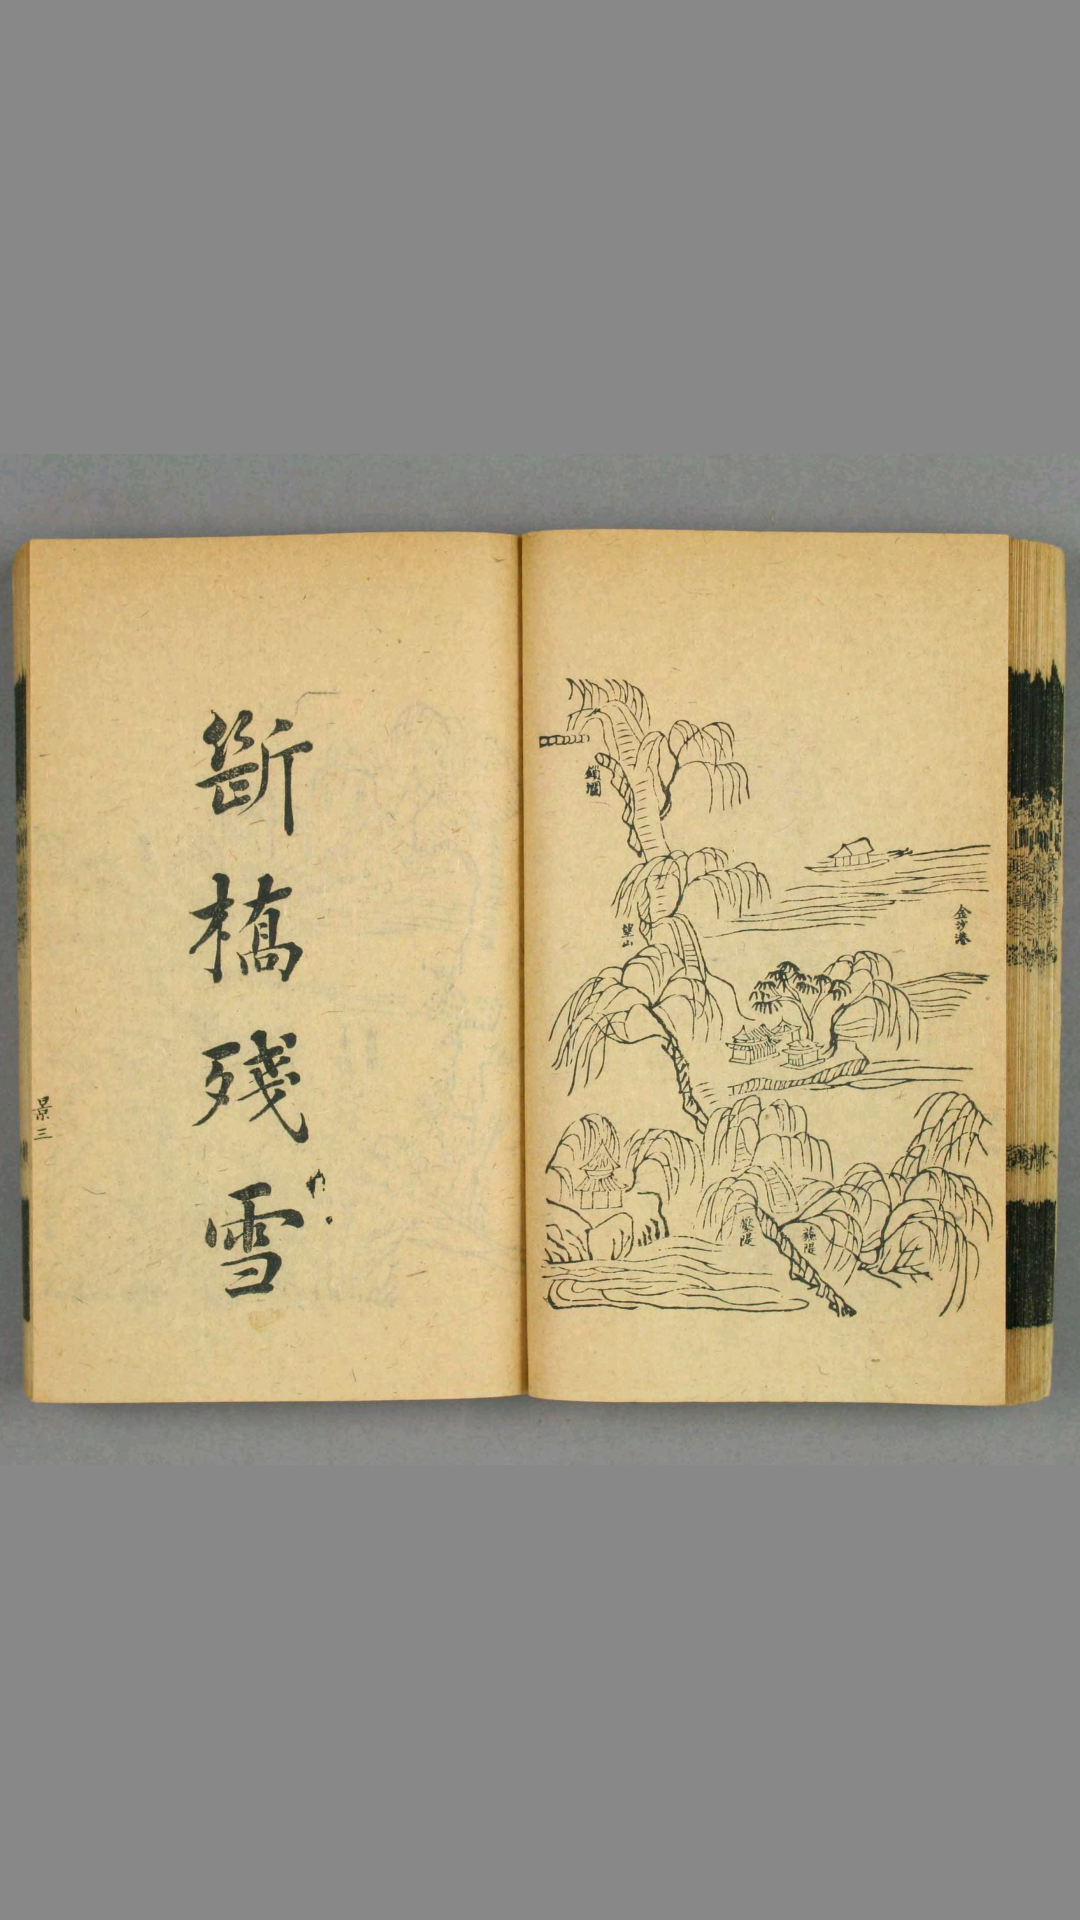 金沙港
蘇堤
壓堤
望山
鎖瀾
斷橋殘雪
景三